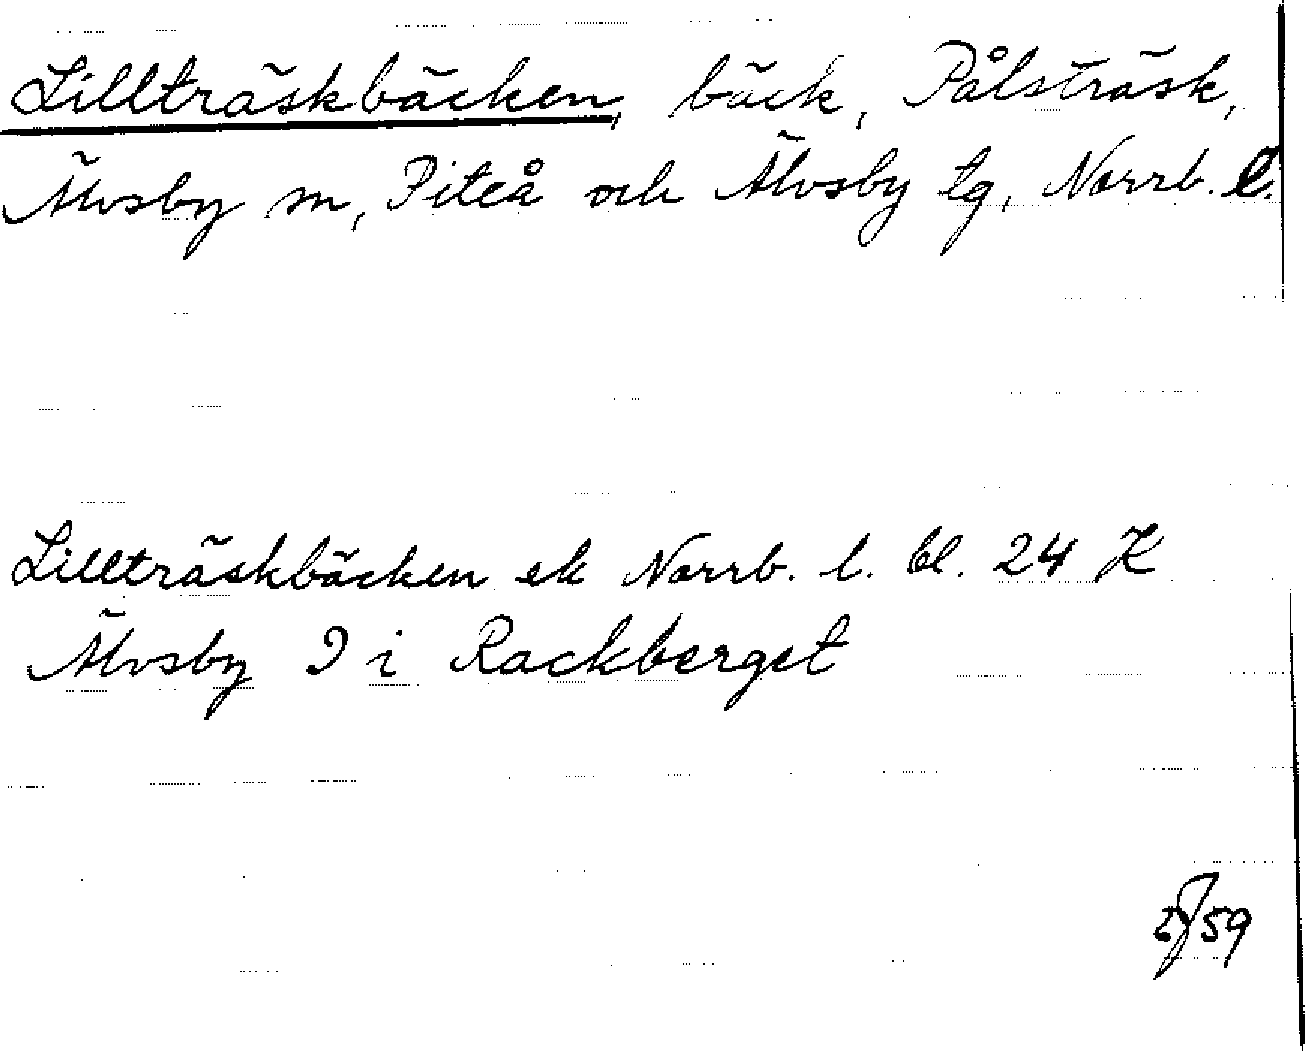 Lillträskbäcken, bäck, Pålsträsk,
Älvsby sn, Piteå och Älvsby tg, Norrb. l.
Lillträskbäcken ek Norrb. l. bl. 24 K
Älvsby 9 i Rackberget
59